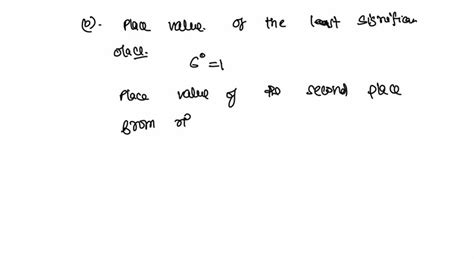 (a). Place value of the least significan
place.
6⁰ = 1
Place value of the second place
from